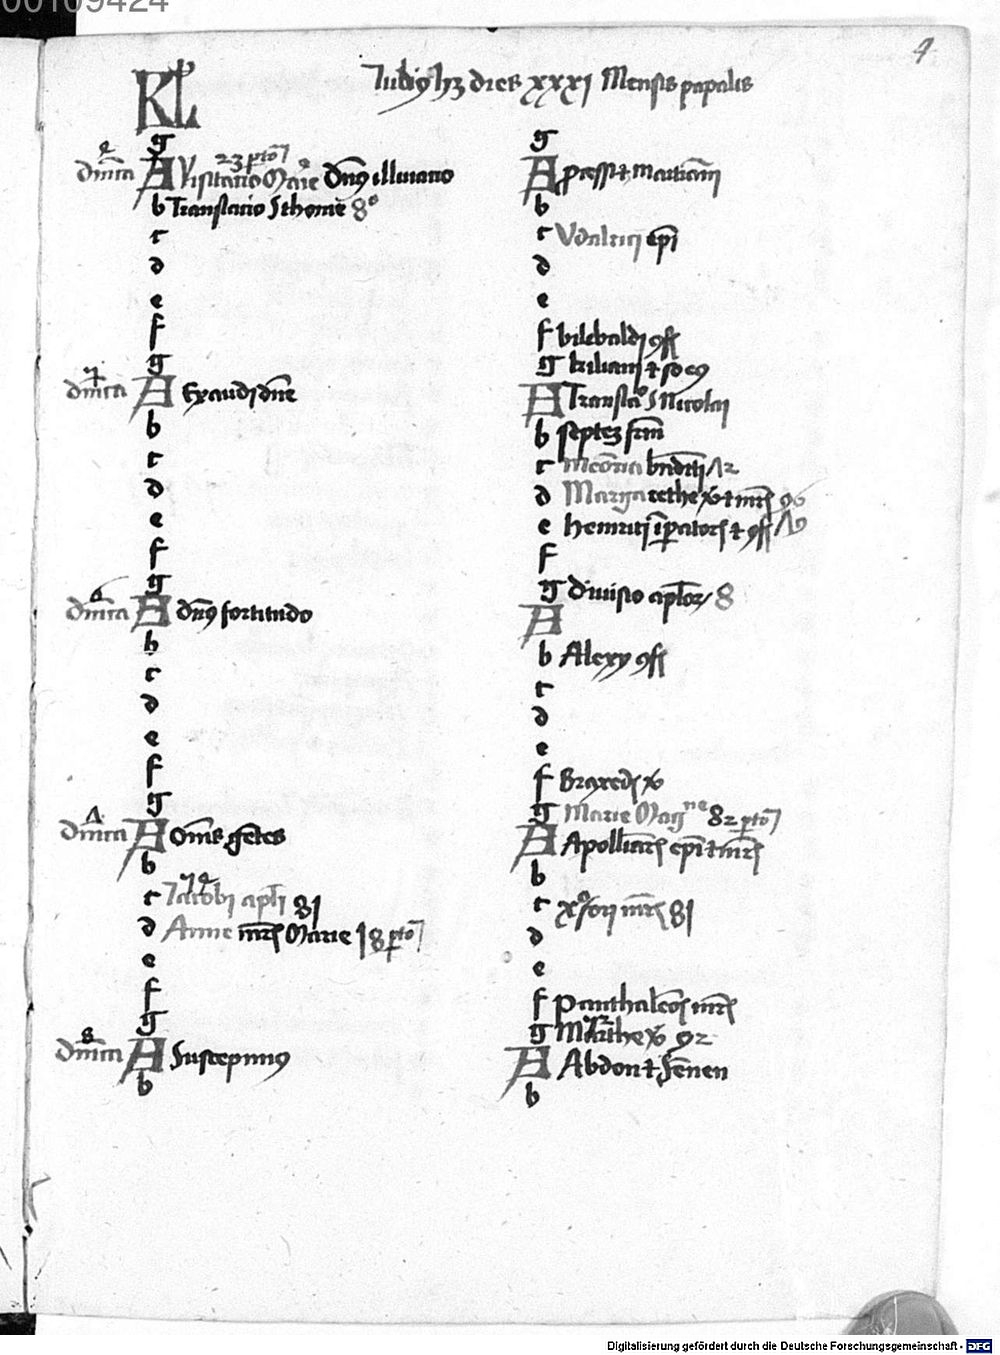 00109424
4
KL Julius hz dies xxxi Mensis papalis
g
A Visitatio Marie Dns illuminatio
b Translatio S thome 8°
c
d
e
f
g
dnica A Exaudi dne
b
c
d
e
f
g
dnica A dns fortitudo
b
c
d
e
f
g
dnica A Oms gētes
b
c Jacobi apli 81
d Anne mris Marie 18 pto
e
f
g
dnica A Suscepimus
b
g
A Processi et martiani
b
c Udalrici epi
d
e
f bilibaldi 9fi
g kiliani et so
A Transla S Nicolai
b septez frm
c bndicti 12
d Margarethe v et mris 96
e heinrici ipatoris et 9f
f
g Divisio aplor 8
A
b Alexy 9f
c
d
e
f Braxedis v
g Marie Mag ne 82 pto
A Apollinaris epi et mris
b
c xpofori mris 81
d
e
f panthaleonis mris
g Marthe v 92
A Abdon et Sennen
b
Digitalisierung gefördert durch die Deutsche Forschungsgemeinschaft - DFG